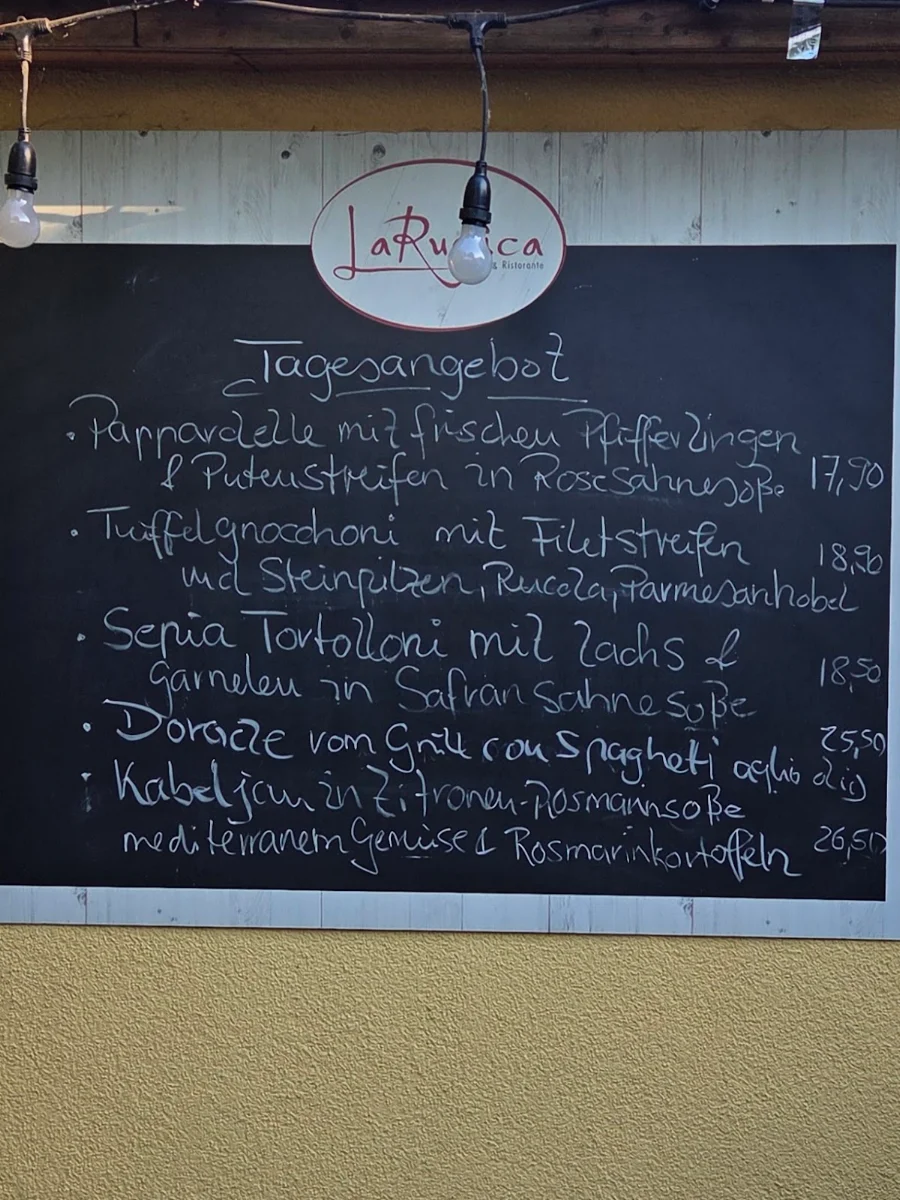 & Ristorante
Tagesangebot
· Pappardelle mit frischen Pfifferlingen
& Putenstreifen in Rosesahnesoße 17,90
· Trüffelgnocchoni mit Filetstreifen 18,90
und Steinpilzen, Rucola, Parmesanhobel
· Sepia Tortolloni mit Lachs &
Garnelen in Safransahnesoße 18,50
· Dorade vom Grill con Spagheti aglio olio 25,50
· Kabeljau in Zitronen-Rosmarinsoße
mediterranem Gemüse & Rosmarinkartoffeln 26,50